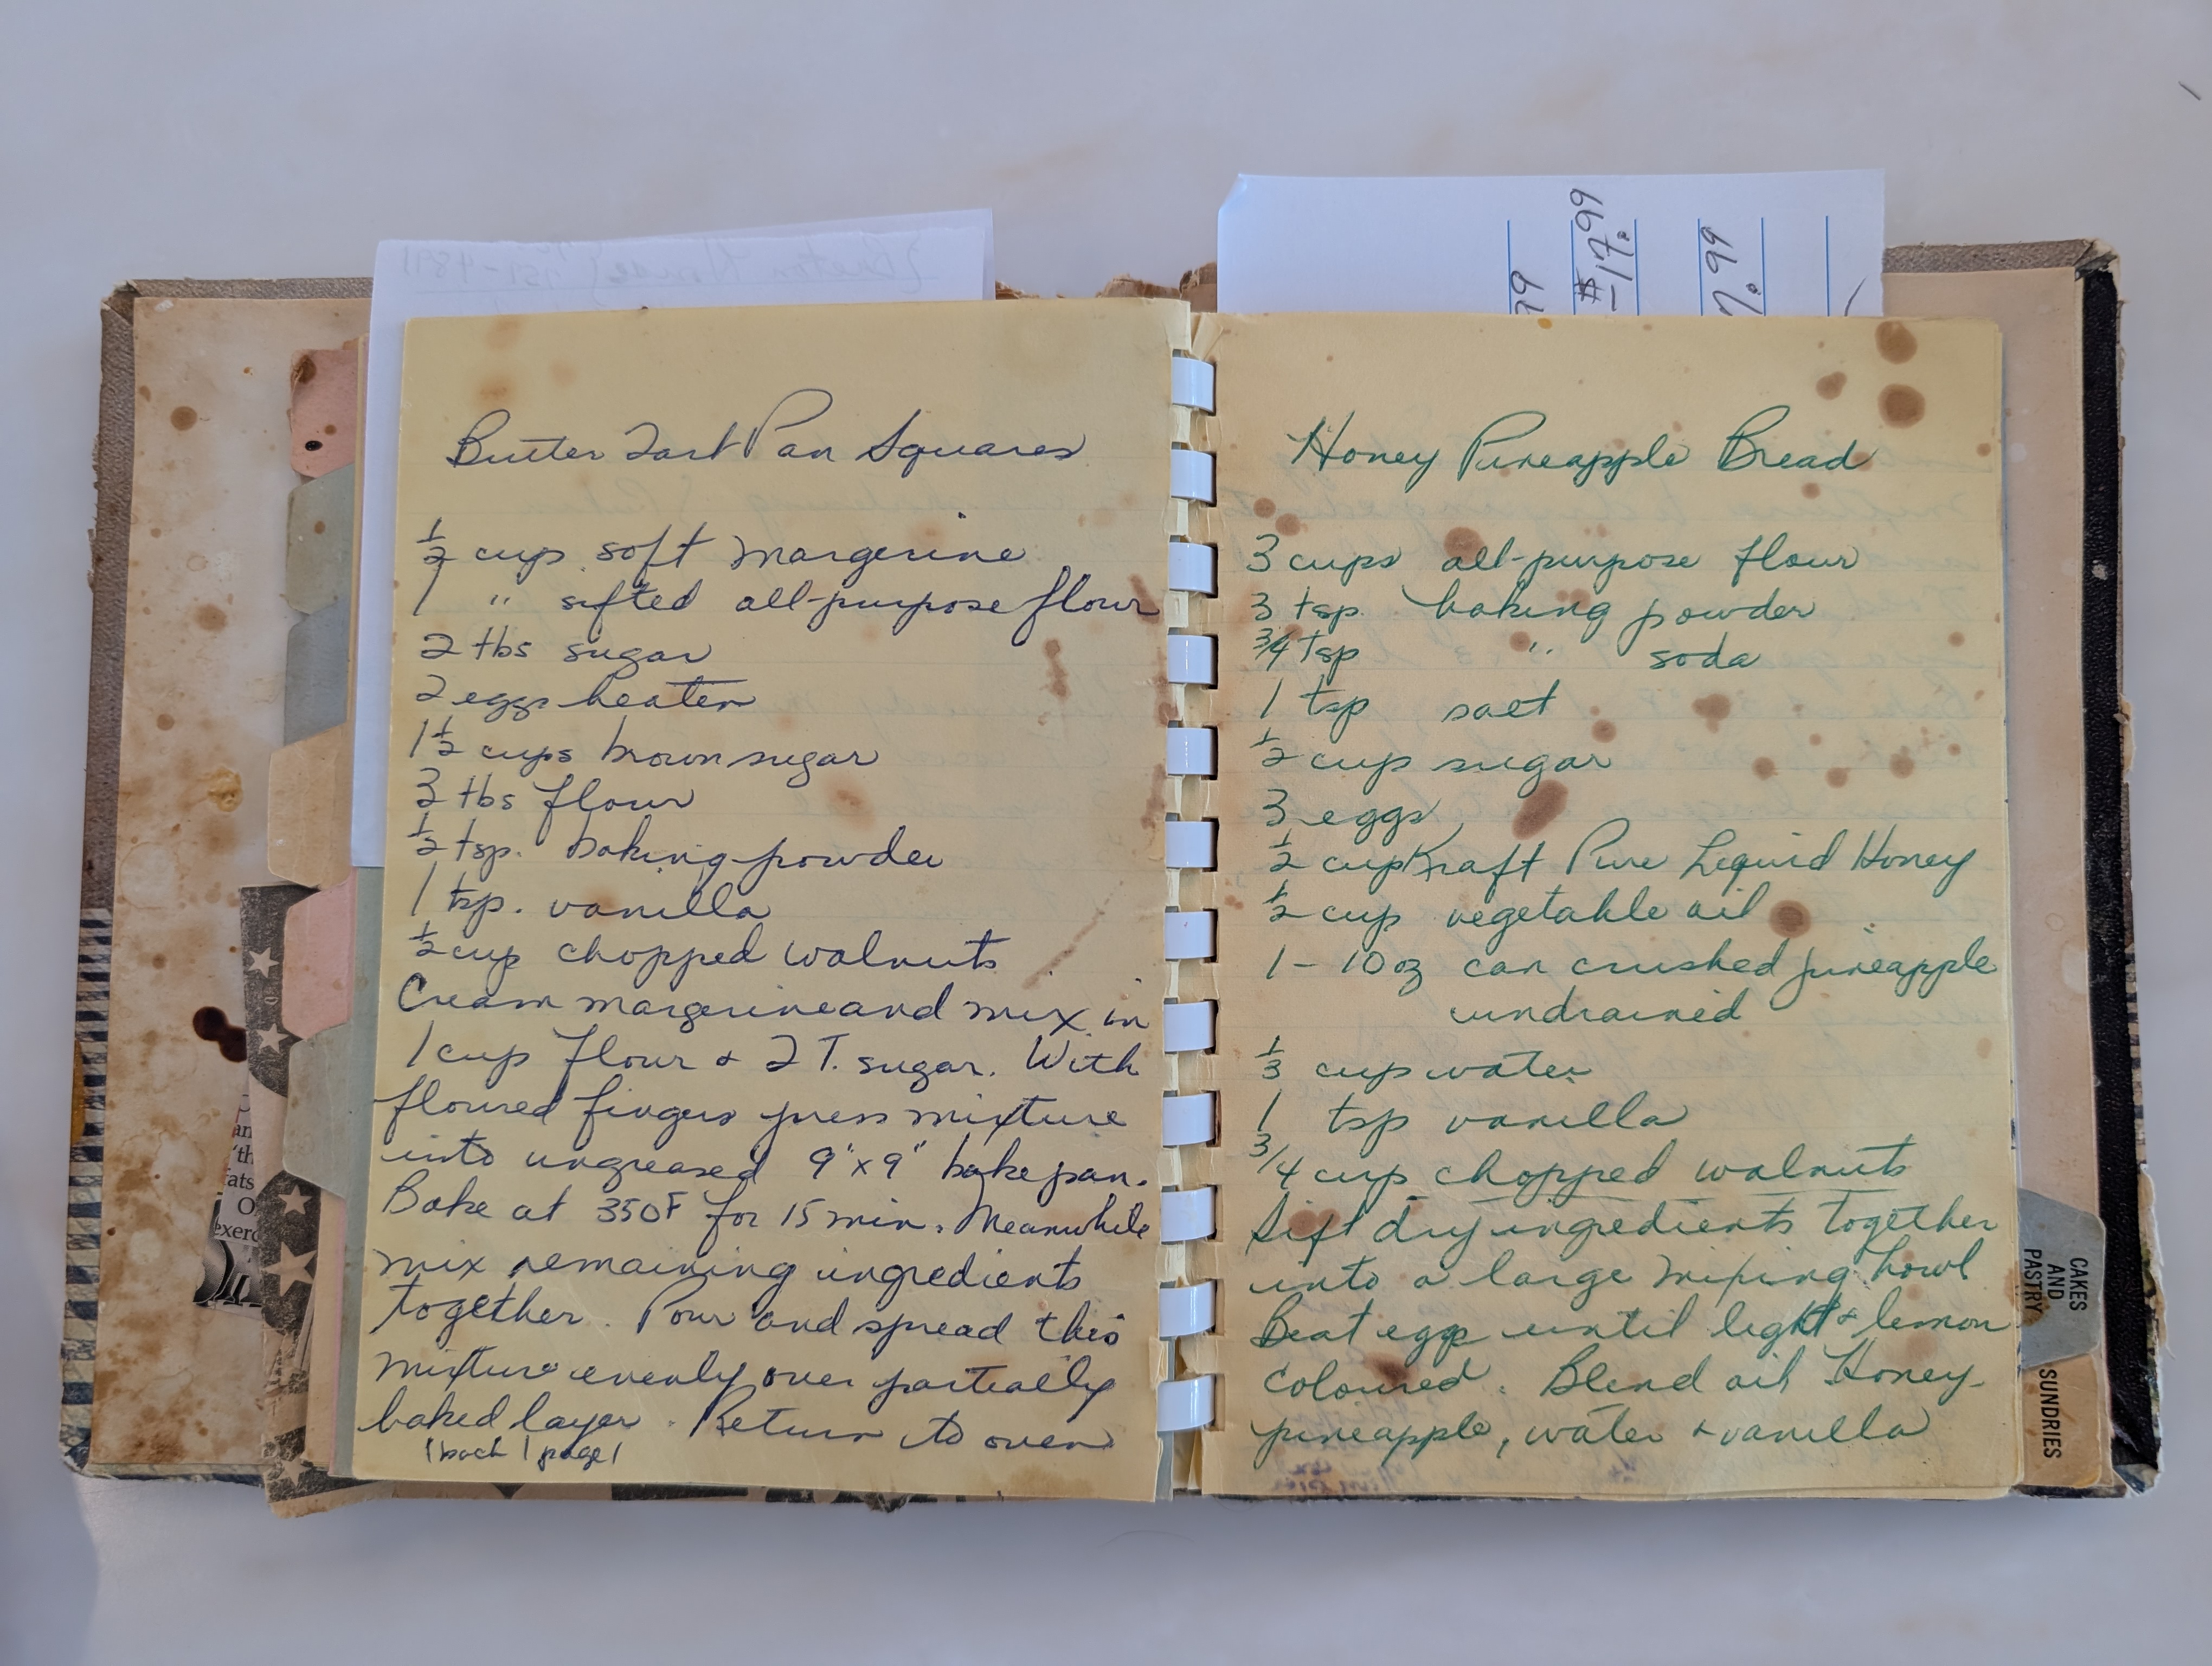 Butter Tart Pan Squares
1/2 cup soft margerine
1 " sifted all-purpose flour
2 tbs sugar
2 eggs beaten
1 1/2 cups brown sugar
3 tbs flour
1/2 tsp. baking powder
1 tsp. vanilla
1/2 cup chopped walnuts
Cream margerine and mix in
1 cup flour & 2 T. sugar. With
floured fingers press mixture
into ungreased 9"x9" bake pan.
Bake at 350F for 15 min. Meanwhile
mix remaining ingredients
together. Pour and spread this
mixture evenly over partially
baked layer. Return to oven
(back 1 page)
Honey Pineapple Bread
3 cups all-purpose flour
3 tsp. baking powder
3/4 tsp " soda
1 tsp salt
1/2 cup sugar
3 eggs
1/2 cup Kraft Pure Liquid Honey
1/2 cup vegetable oil
1 - 10 oz can crushed pineapple
undrained
1/3 cup water
1 tsp vanilla
3/4 cup chopped walnuts
Sift dry ingredients together
into a large mixing bowl
Beat eggs until light & lemon
coloured. Blend oil Honey
pineapple, water & vanilla
CAKES
AND
PASTRY
SUNDRIES